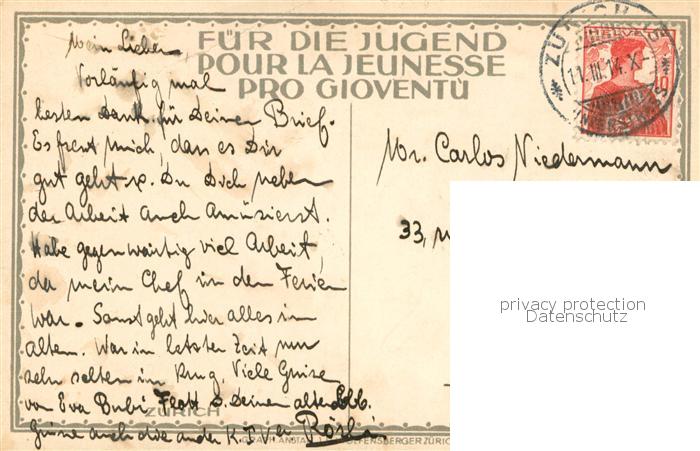 FÜR DIE JUGEND
POUR LA JEUNESSE
PRO GIOVENTÙ
Mein Lieber
Vorläufig mal
besten Dank für Deinen Brief.
Es freut mich, dass es Dir
gut geht & Du Dich neben
der Arbeit auch amüsierst.
Habe gegenwärtig viel Arbeit,
da mein Chef in den Ferien
war. Sonst geht hier alles im
alten. War in letzter Zeit nur
sehr selten im Ring. Viele Grüsse
von Eva Bubi & Deinem alten
Grüsse auch die andern
Mr. Carlos Niedermann
33,
HELVETIA
10
11.III.14.X-
ZÜRICH
GRAPH. ANSTALT J. E. WOLFENSBERGER ZÜRICH
privacy protection
Datenschutz